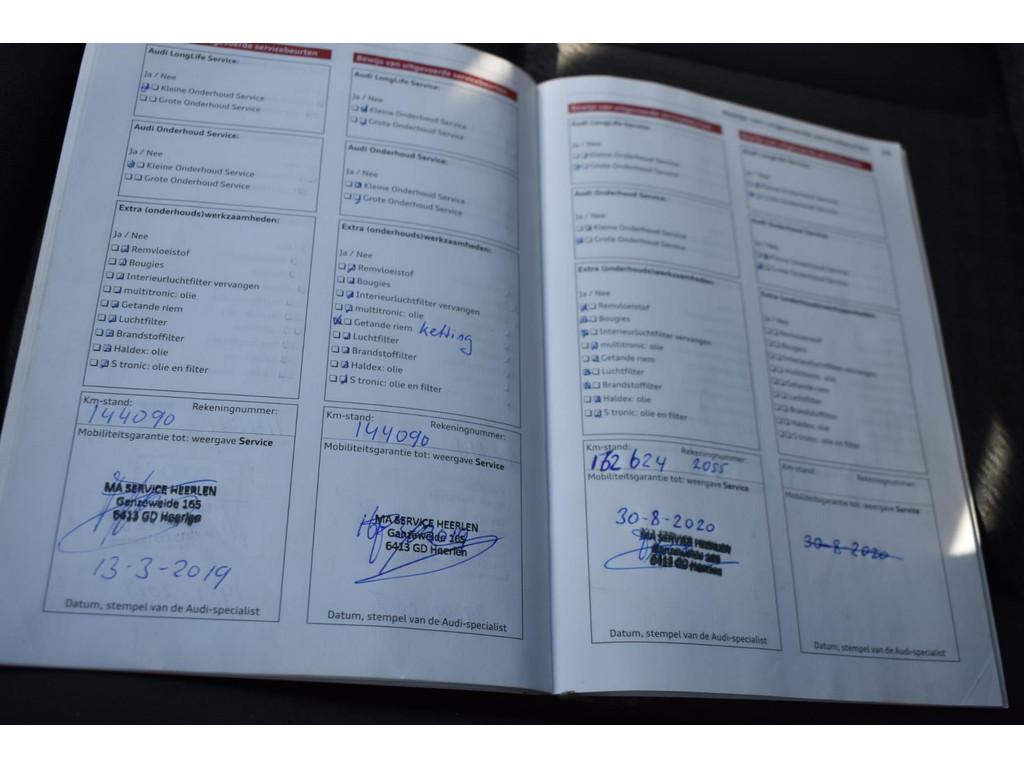 servicebeurten
Audi LongLife Service:
Ja / Nee
Kleine Onderhoud Service
Grote Onderhoud Service
Audi Onderhoud Service:
Kleine Onderhoud Service
Grote Onderhoud Service
Extra (onderhouds)werkzaamheden:
Ja / Nee
Remvloeistof
Bougies
Interieurluchtfilter vervangen
multitronic: olie
Getande riem
Luchtfilter
Brandstoffilter
Haldex: olie
S tronic: olie en filter
Km-stand: Rekeningnummer:
144090
Mobiliteitsgarantie tot: weergave Service
MA SERVICE HEERLEN
Ganzeweide 165
6413 GD Heerlen
13-3-2019
Datum, stempel van de Audi-specialist
Bewijs van uitgevoerde servicebeurten
Audi LongLife Service:
Ja / Nee
Kleine Onderhoud Service
Grote Onderhoud Service
Audi Onderhoud Service:
Kleine Onderhoud Service
Grote Onderhoud Service
Extra (onderhouds)werkzaamheden:
Ja / Nee
Remvloeistof
Bougies
Interieurluchtfilter vervangen
multitronic: olie
Getande riem ketting
Luchtfilter
Brandstoffilter
Haldex: olie
S tronic: olie en filter
Km-stand: Rekeningnummer:
144090
Mobiliteitsgarantie tot: weergave Service
MA SERVICE HEERLEN
Ganzeweide 165
6413 GD Heerlen
Datum, stempel van de Audi-specialist
Bewijs van uitgevoerde servicebeurten
Audi LongLife Service:
Ja / Nee
Kleine Onderhoud Service
Grote Onderhoud Service
Audi Onderhoud Service:
Kleine Onderhoud Service
Grote Onderhoud Service
Extra (onderhouds)werkzaamheden:
Ja / Nee
Remvloeistof
Bougies
Interieurluchtfilter vervangen
multitronic: olie
Getande riem
Luchtfilter
Brandstoffilter
Haldex: olie
S tronic: olie en filter
Km-stand: Rekeningnummer:
162624 2055
Mobiliteitsgarantie tot: weergave Service
30-8-2020
MA SERVICE HEERLEN
Ganzeweide 165
6413 GD Heerlen
Datum, stempel van de Audi-specialist
Audi LongLife Service:
Ja / Nee
Kleine Onderhoud Service
Grote Onderhoud Service
Audi Onderhoud Service:
Ja / Nee
Kleine Onderhoud Service
Grote Onderhoud Service
Extra (onderhouds)werkzaamheden:
Ja / Nee
Remvloeistof
Bougies
Interieurluchtfilter vervangen
multitronic: olie
Getande riem
Luchtfilter
Brandstoffilter
Haldex: olie
S tronic: olie en filter
Km-stand: Rekeningnummer:
Mobiliteitsgarantie tot: weergave Service
30-8-2020
Datum, stempel van de Audi-specialist